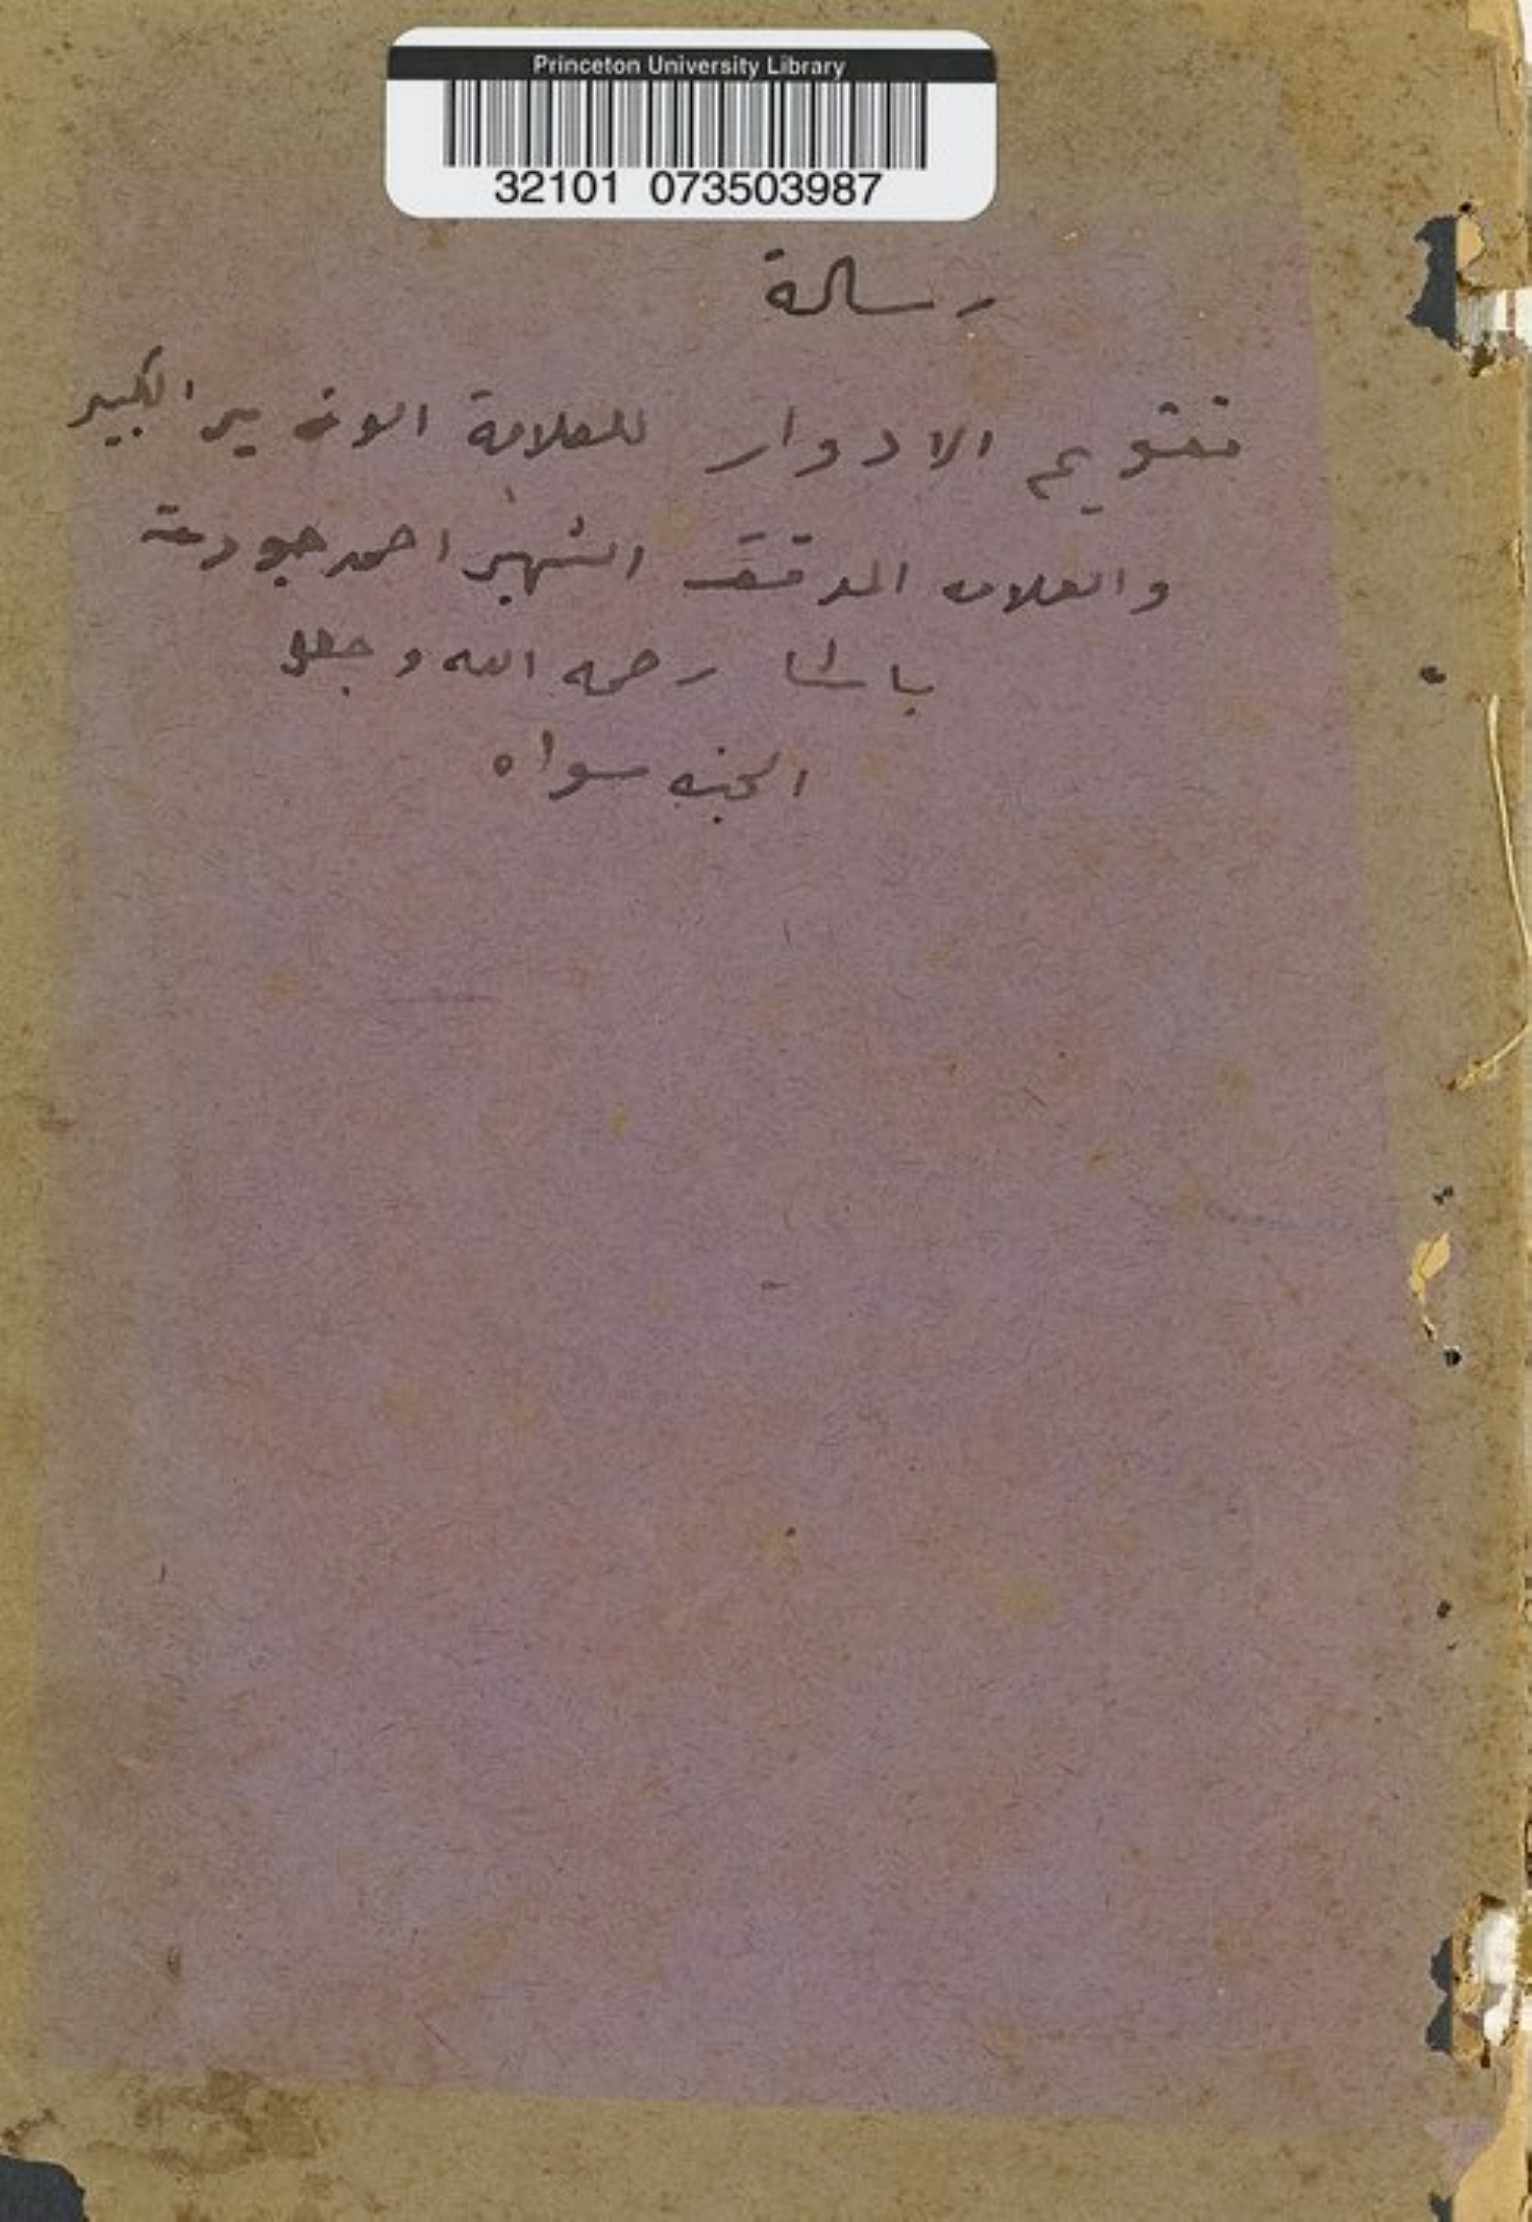 Princeton University Library
32101 073503987
رسالة
تقويم الادوار للعلامة الوزير الكبير
والعلامه المدقق الشهير احمد جودت
باشا رحمه الله وجعل
الجنه سواه